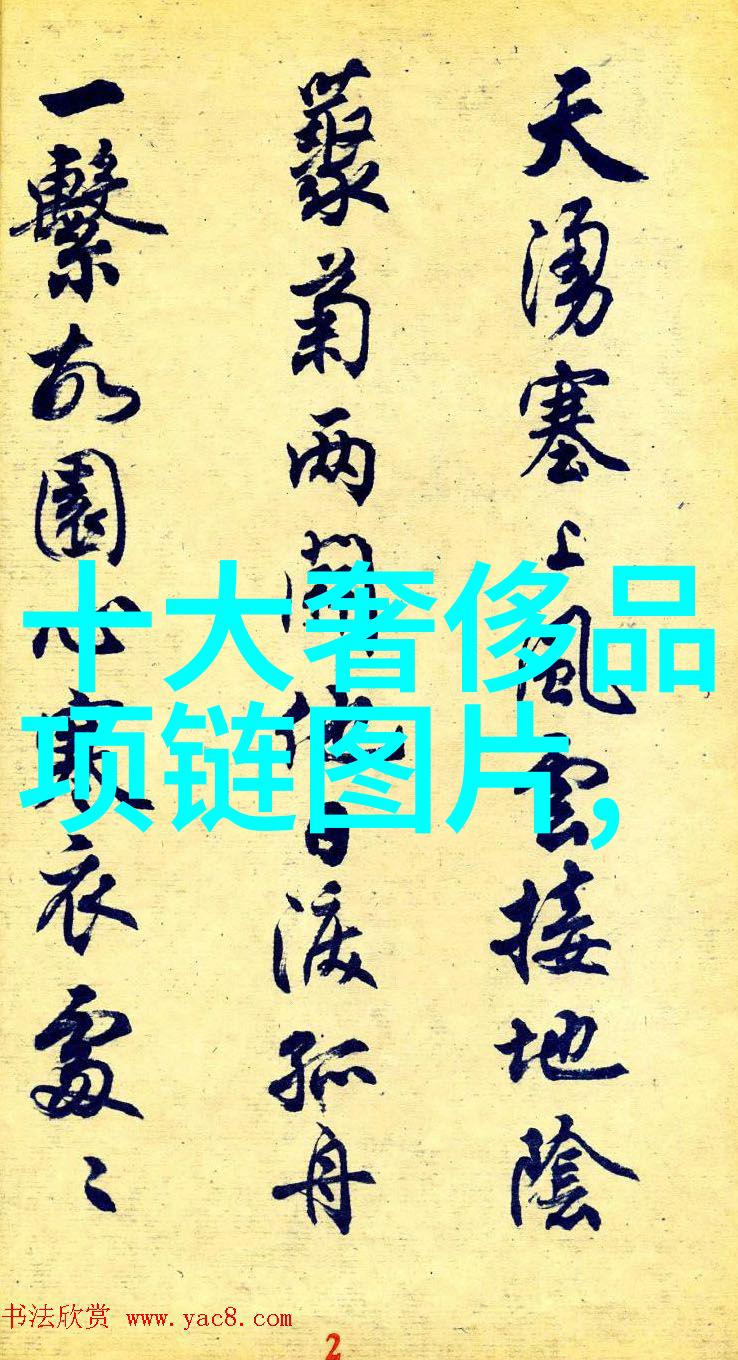 天湧塞上風雲接地陰
藂菊两開他日淚孤舟
一繫故園心寒衣處〻
十大奢侈品
项链图片,
书法欣赏 www.yac8.com
2